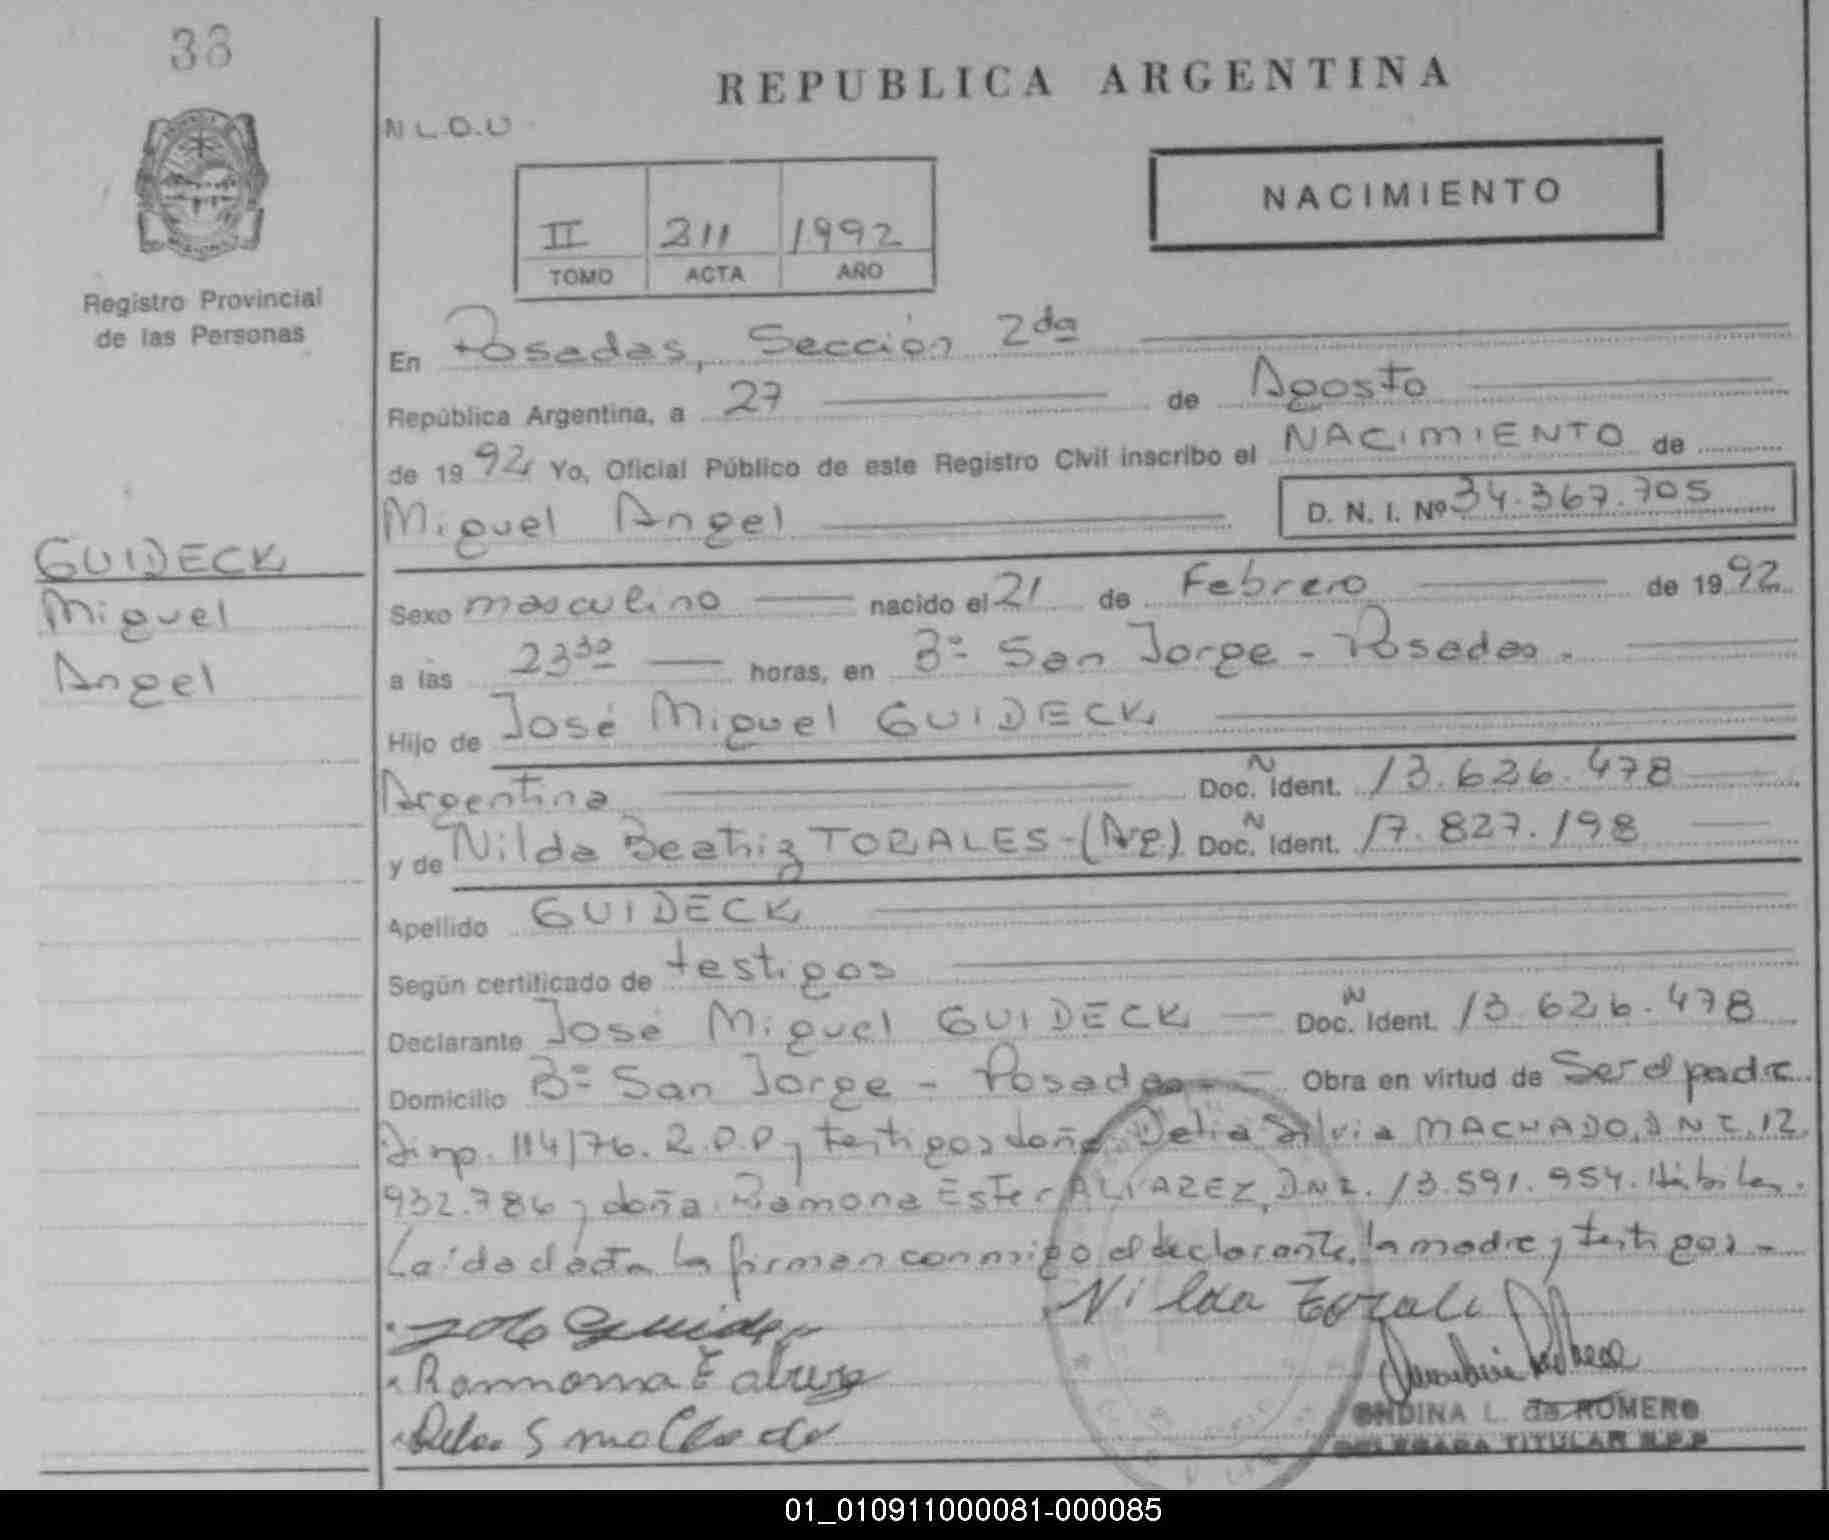 38
REPUBLICA ARGENTINA
N L.O.U
NACIMIENTO
II 211 1992
TOMO ACTA AÑO
Registro Provincial
de las Personas
En Posadas, Sección 2da
República Argentina, a 27 de Agosto
de 1992 Yo, Oficial Público de este Registro Civil inscribo el NACIMIENTO de
Miguel Angel D. N. I. Nº 34.367.705
GUIDECK
Miguel
Angel
Sexo masculino nacido el 21 de Febrero de 1992
a las 23 30 horas, en Bº San Jorge - Posadas.
Hijo de José Miguel GUIDECK
Argentina Doc. N Ident. 13.626.478
y de Nilda Beatriz TORALES - (Arg) Doc. N Ident. 17.827.198
Apellido GUIDECK
Según certificado de testigos
Declarante José Miguel GUIDECK Doc. N Ident. 13.626.478
Domicilio Bº San Jorge - Posadas Obra en virtud de Ser el padre
Disp. 114/76. R.P.P y testigos doña Delia Silvia MACHADO, D N I. 12.
932.786 y doña Ramona Ester ALVAREZ, D.N.I. 13.591.954. Hábiles.
Leída el acta la firman conmigo el declarante, la madre y testigos -
Nilda Torales
Ramona E
ONDINA L. de ROMERO
DELEGADA TITULAR R.P.P
01_010911000081-000085